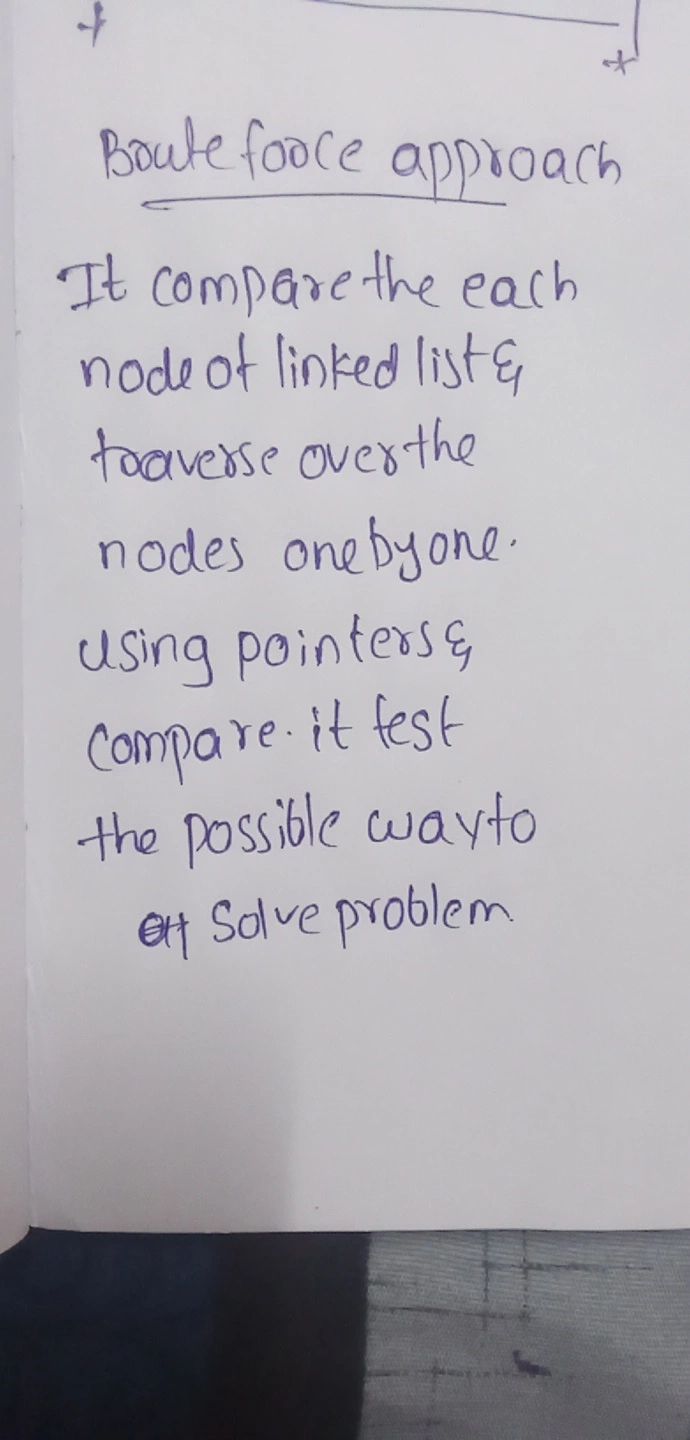 Broute foorce approach
It compare the each
node of linked list &
traverse over the
nodes one by one.
using pointers &
compare. it test
the possible way to
solve problem